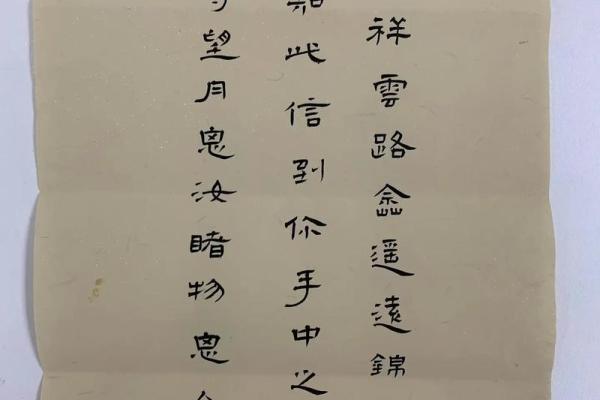 祥雲路遥遠錦
知此信到你手中之
望月思汝睹物思